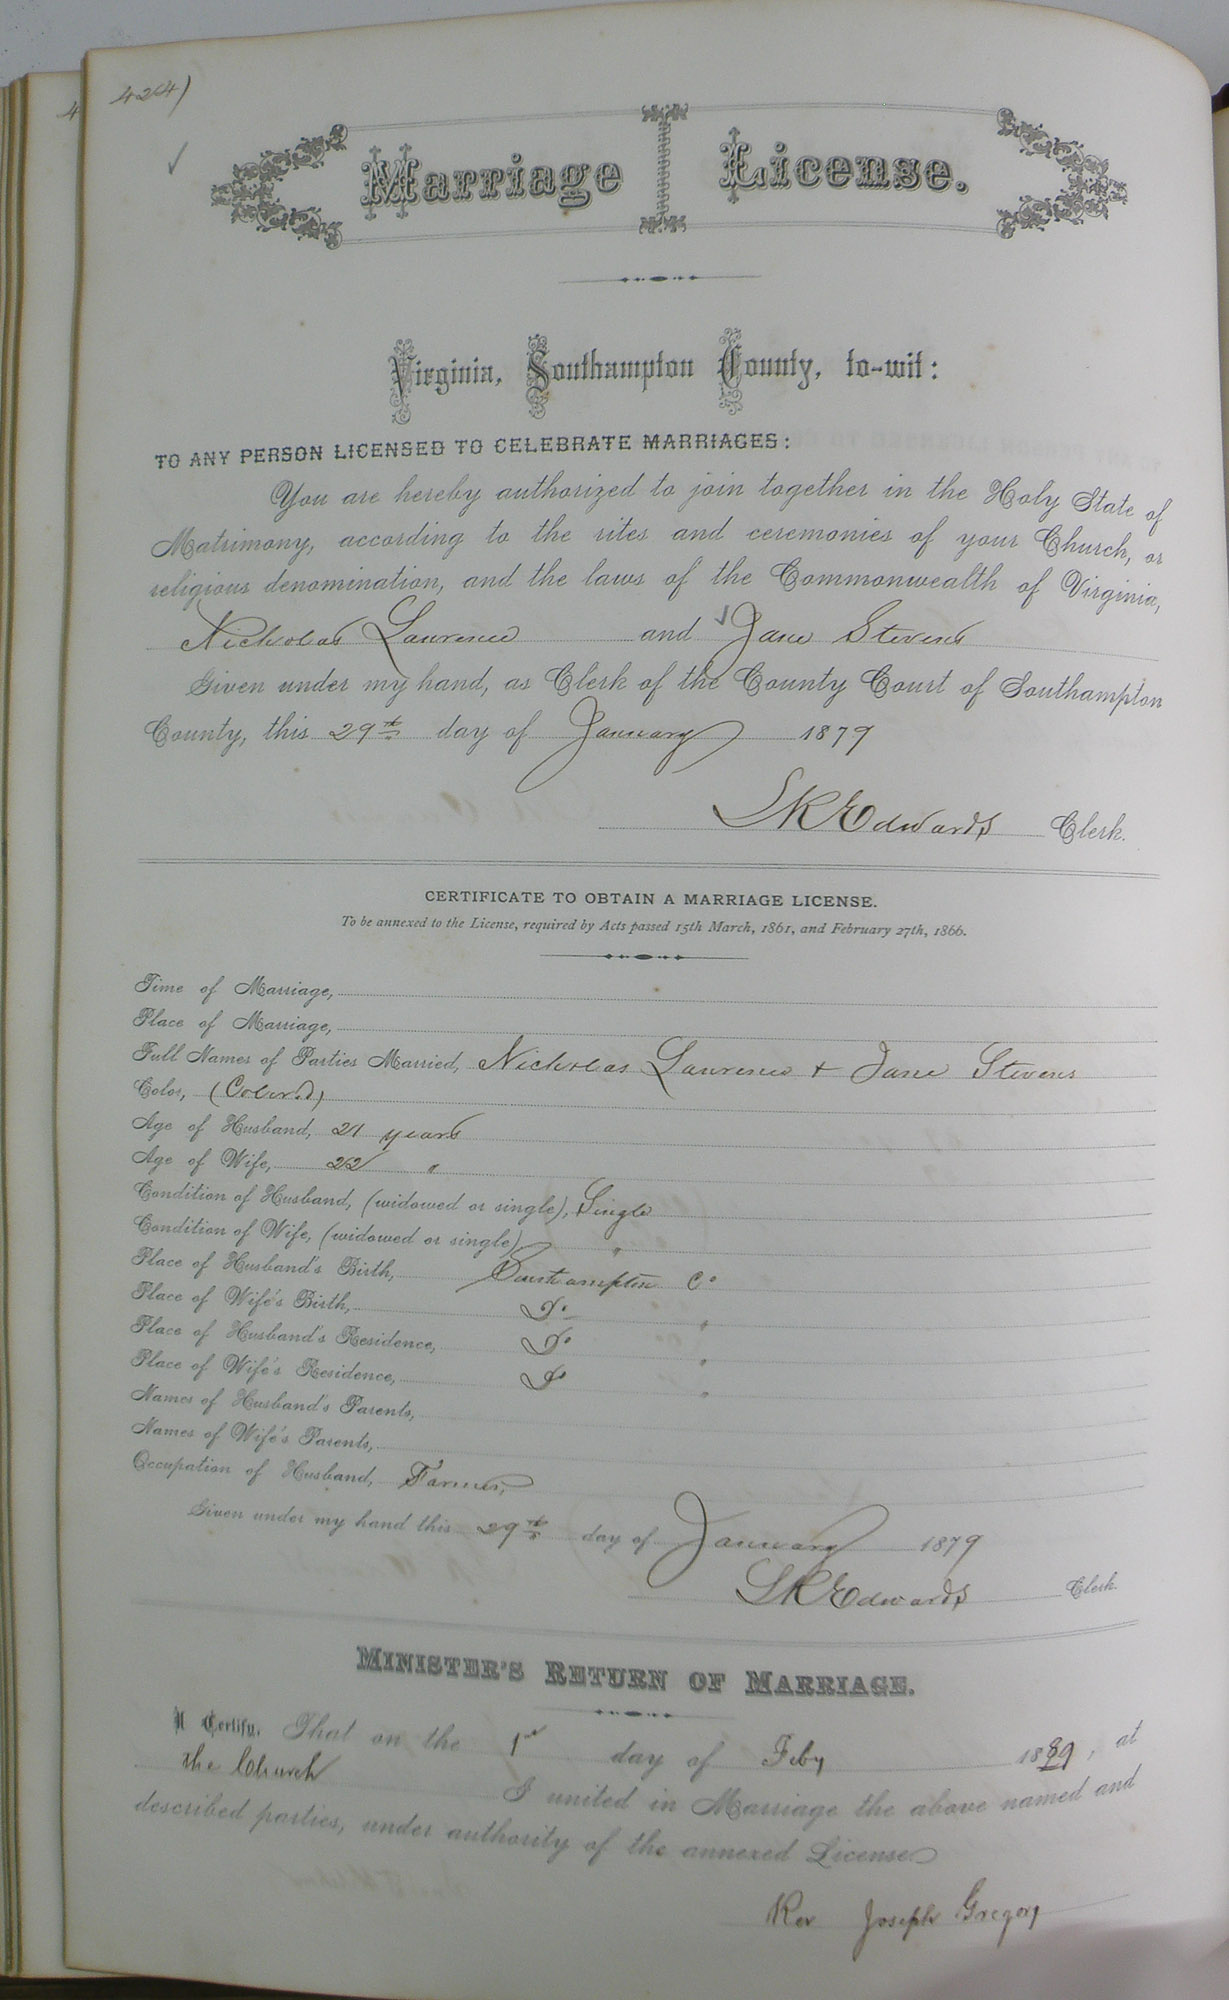 424)
Marriage License.
Virginia, Southampton County, to-wit:
TO ANY PERSON LICENSED TO CELEBRATE MARRIAGES:
You are hereby authorized to join together in the Holy State of
Matrimony, according to the rites and ceremonies of your Church, or
religious denomination, and the laws of the Commonwealth of Virginia,
Nicholas Lawrence and Jane Stevens
Given under my hand, as Clerk of the County Court of Southampton
County, this 29th day of January 1879
LREdwards Clerk.
CERTIFICATE TO OBTAIN A MARRIAGE LICENSE.
To be annexed to the License, required by Acts passed 15th March, 1861, and February 27th, 1866.
Time of Marriage,
Place of Marriage,
Full Names of Parties Married, Nicholas Lawrence + Jane Stevens
Color, (Colored)
Age of Husband, 21 years
Age of Wife, 22 "
Condition of Husband, (widowed or single), Single
Condition of Wife, (widowed or single) "
Place of Husband's Birth, Southampton Co
Place of Wife's Birth, Do "
Place of Husband's Residence, Do "
Place of Wife's Residence, Do "
Names of Husband's Parents,
Names of Wife's Parents,
Occupation of Husband, Farmer,
Given under my hand this 29th day of January 1879
LREdwards Clerk.
MINISTER'S RETURN OF MARRIAGE.
I Certify, That on the 1st day of Feby 1879, at
the Church I united in Marriage the above named and
described parties, under authority of the annexed License
Rev Joseph Gregory